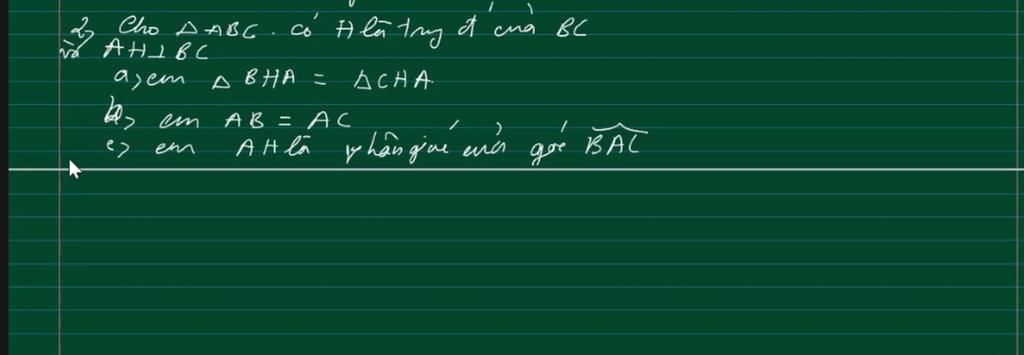 2, Cho △ ABC. có H là trung đ của BC
và AH ⊥ BC
a, cm △ BHA = △ CHA
b, cm AB = AC
c, cm AH là phân giác của góc BAC